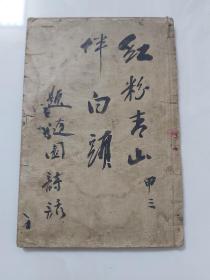 红粉青山
伴白頭
甲三
隨園詩話